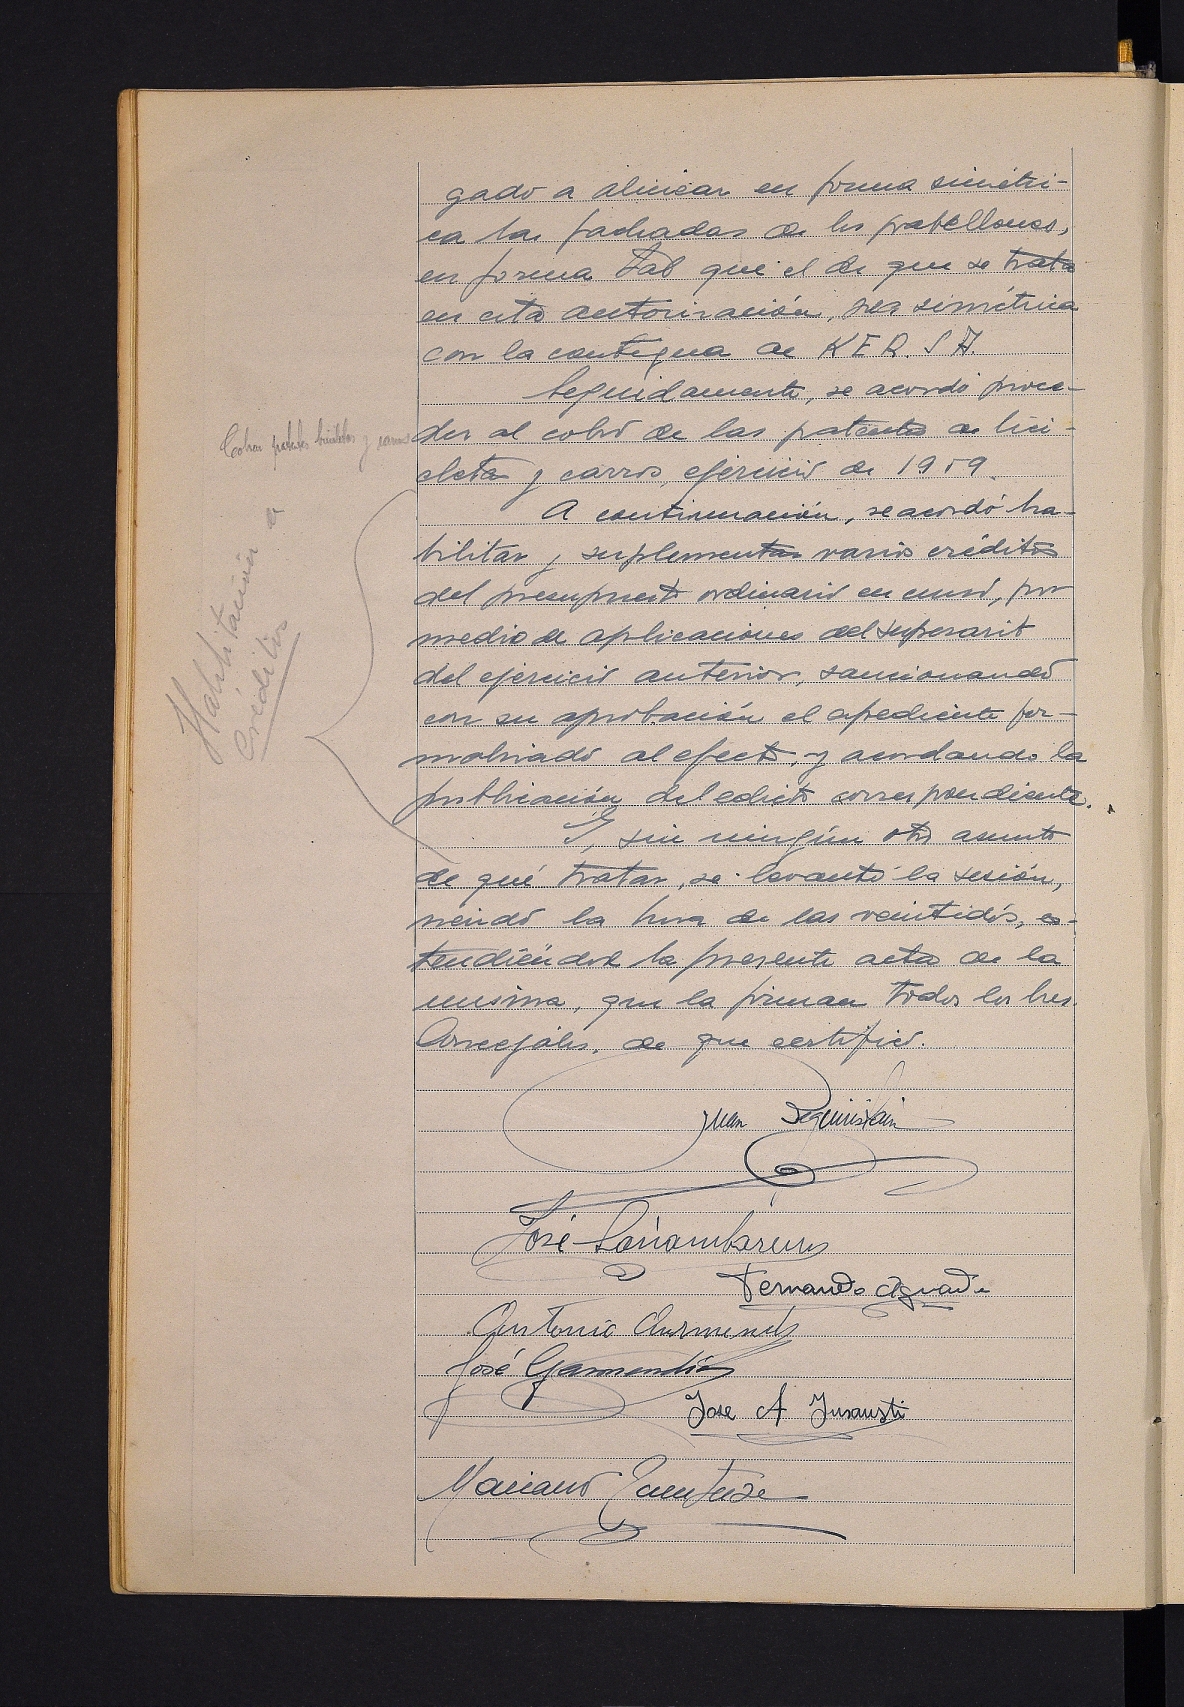 gado a alinear en forma simétri-
ca las fachadas de los pabellones,
en forma tal que el de que se trata
en esta autorización, sea simétrica
con la contigua de K E R. S A.
Seguidamente, se acordó proce-
der al cobro de las patentes de bici-
cleta y carros, ejercicio de 1959.
A continuación, se acordó ha-
bilitar y suplementar varios créditos
del presupuesto ordinario en curso, por
medio de aplicaciones del superavit
del ejercicio anterior, sancionando
con su aprobación el expediente for-
malizado al efecto, y acordando la
publicación del edicto correspondiente.
Y, sin ningún otro asunto
de qué tratar, se levantó la sesión,
siendo la hora de las veintidós, ex-
tendiéndose la presente acta de la
misma, que la firman todos los Sres.
Concejales, de que certifico.
Cobrar patentes bicicletas y carros
Habilitación de
Créditos
Juan
José
Fernando Aguado
Antonio
José Garmendia
Jose A Insausti
Mariano